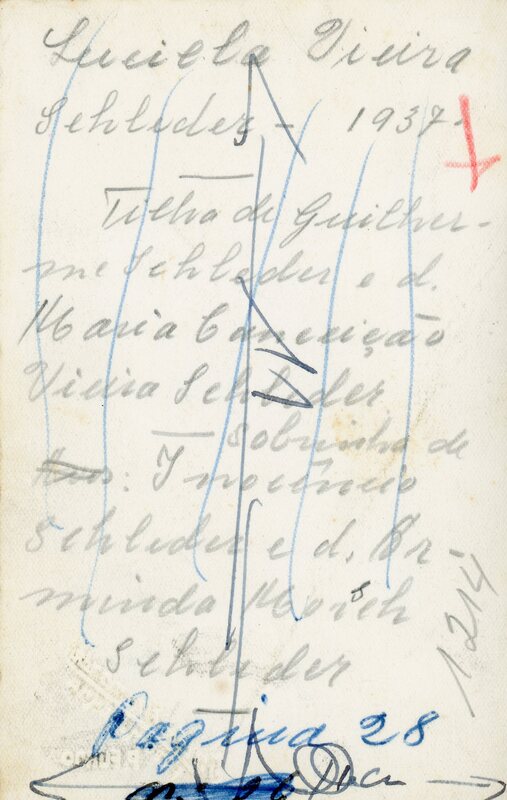 Luciela Vieira
Schleder, - 1937-
Filha de Guilher-
me Schleder e d.
Maria Conceição
Vieira Schleder
— Sobrinha de
: Inocêncio
Schleder e d. Ar-
minda Horsch
Schleder
1214
Pagina 28